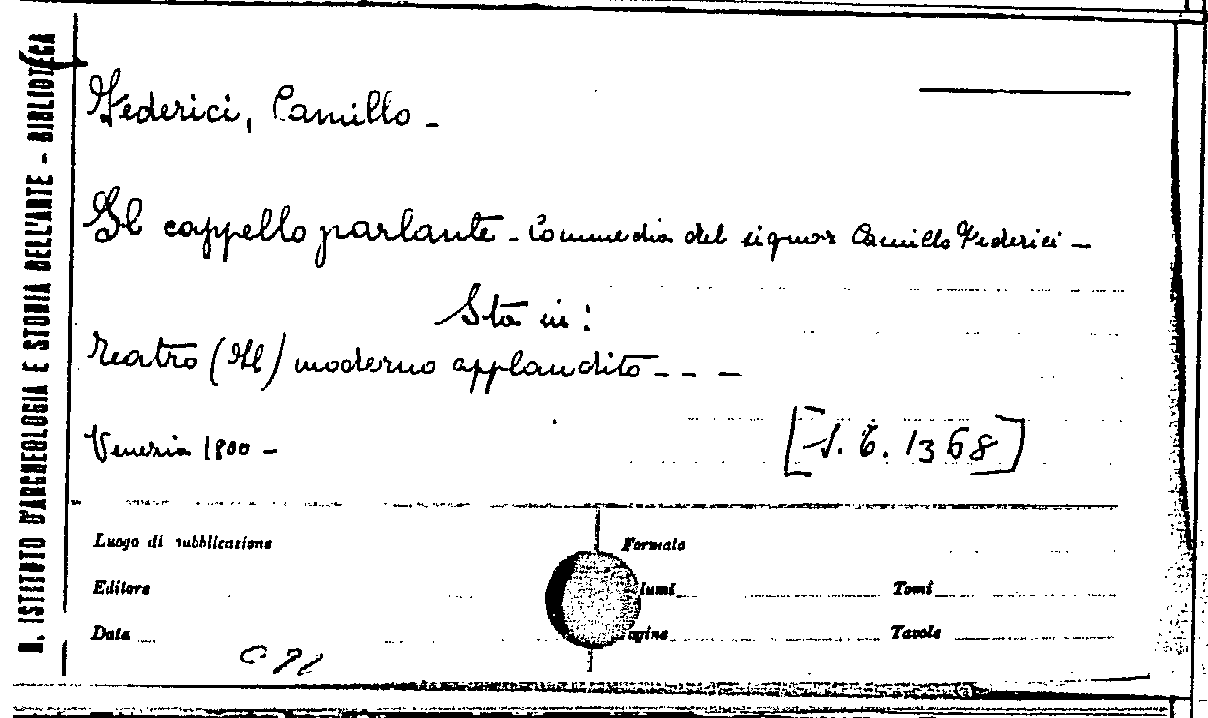 R. ISTITUTO D'ARCHEOLOGIA E STORIA DELL'ARTE - BIBLIOTECA
Federici, Camillo -
Il cappello parlante - Commedia del signor Camillo Federici -
Sta in:
Teatro (Il) moderno applaudito - - -
Venezia 1800 -
[S. T. 1368]
Luogo di pubblicazione
Formato
Editore
lumi
Tomi
Data
agine
Tavole